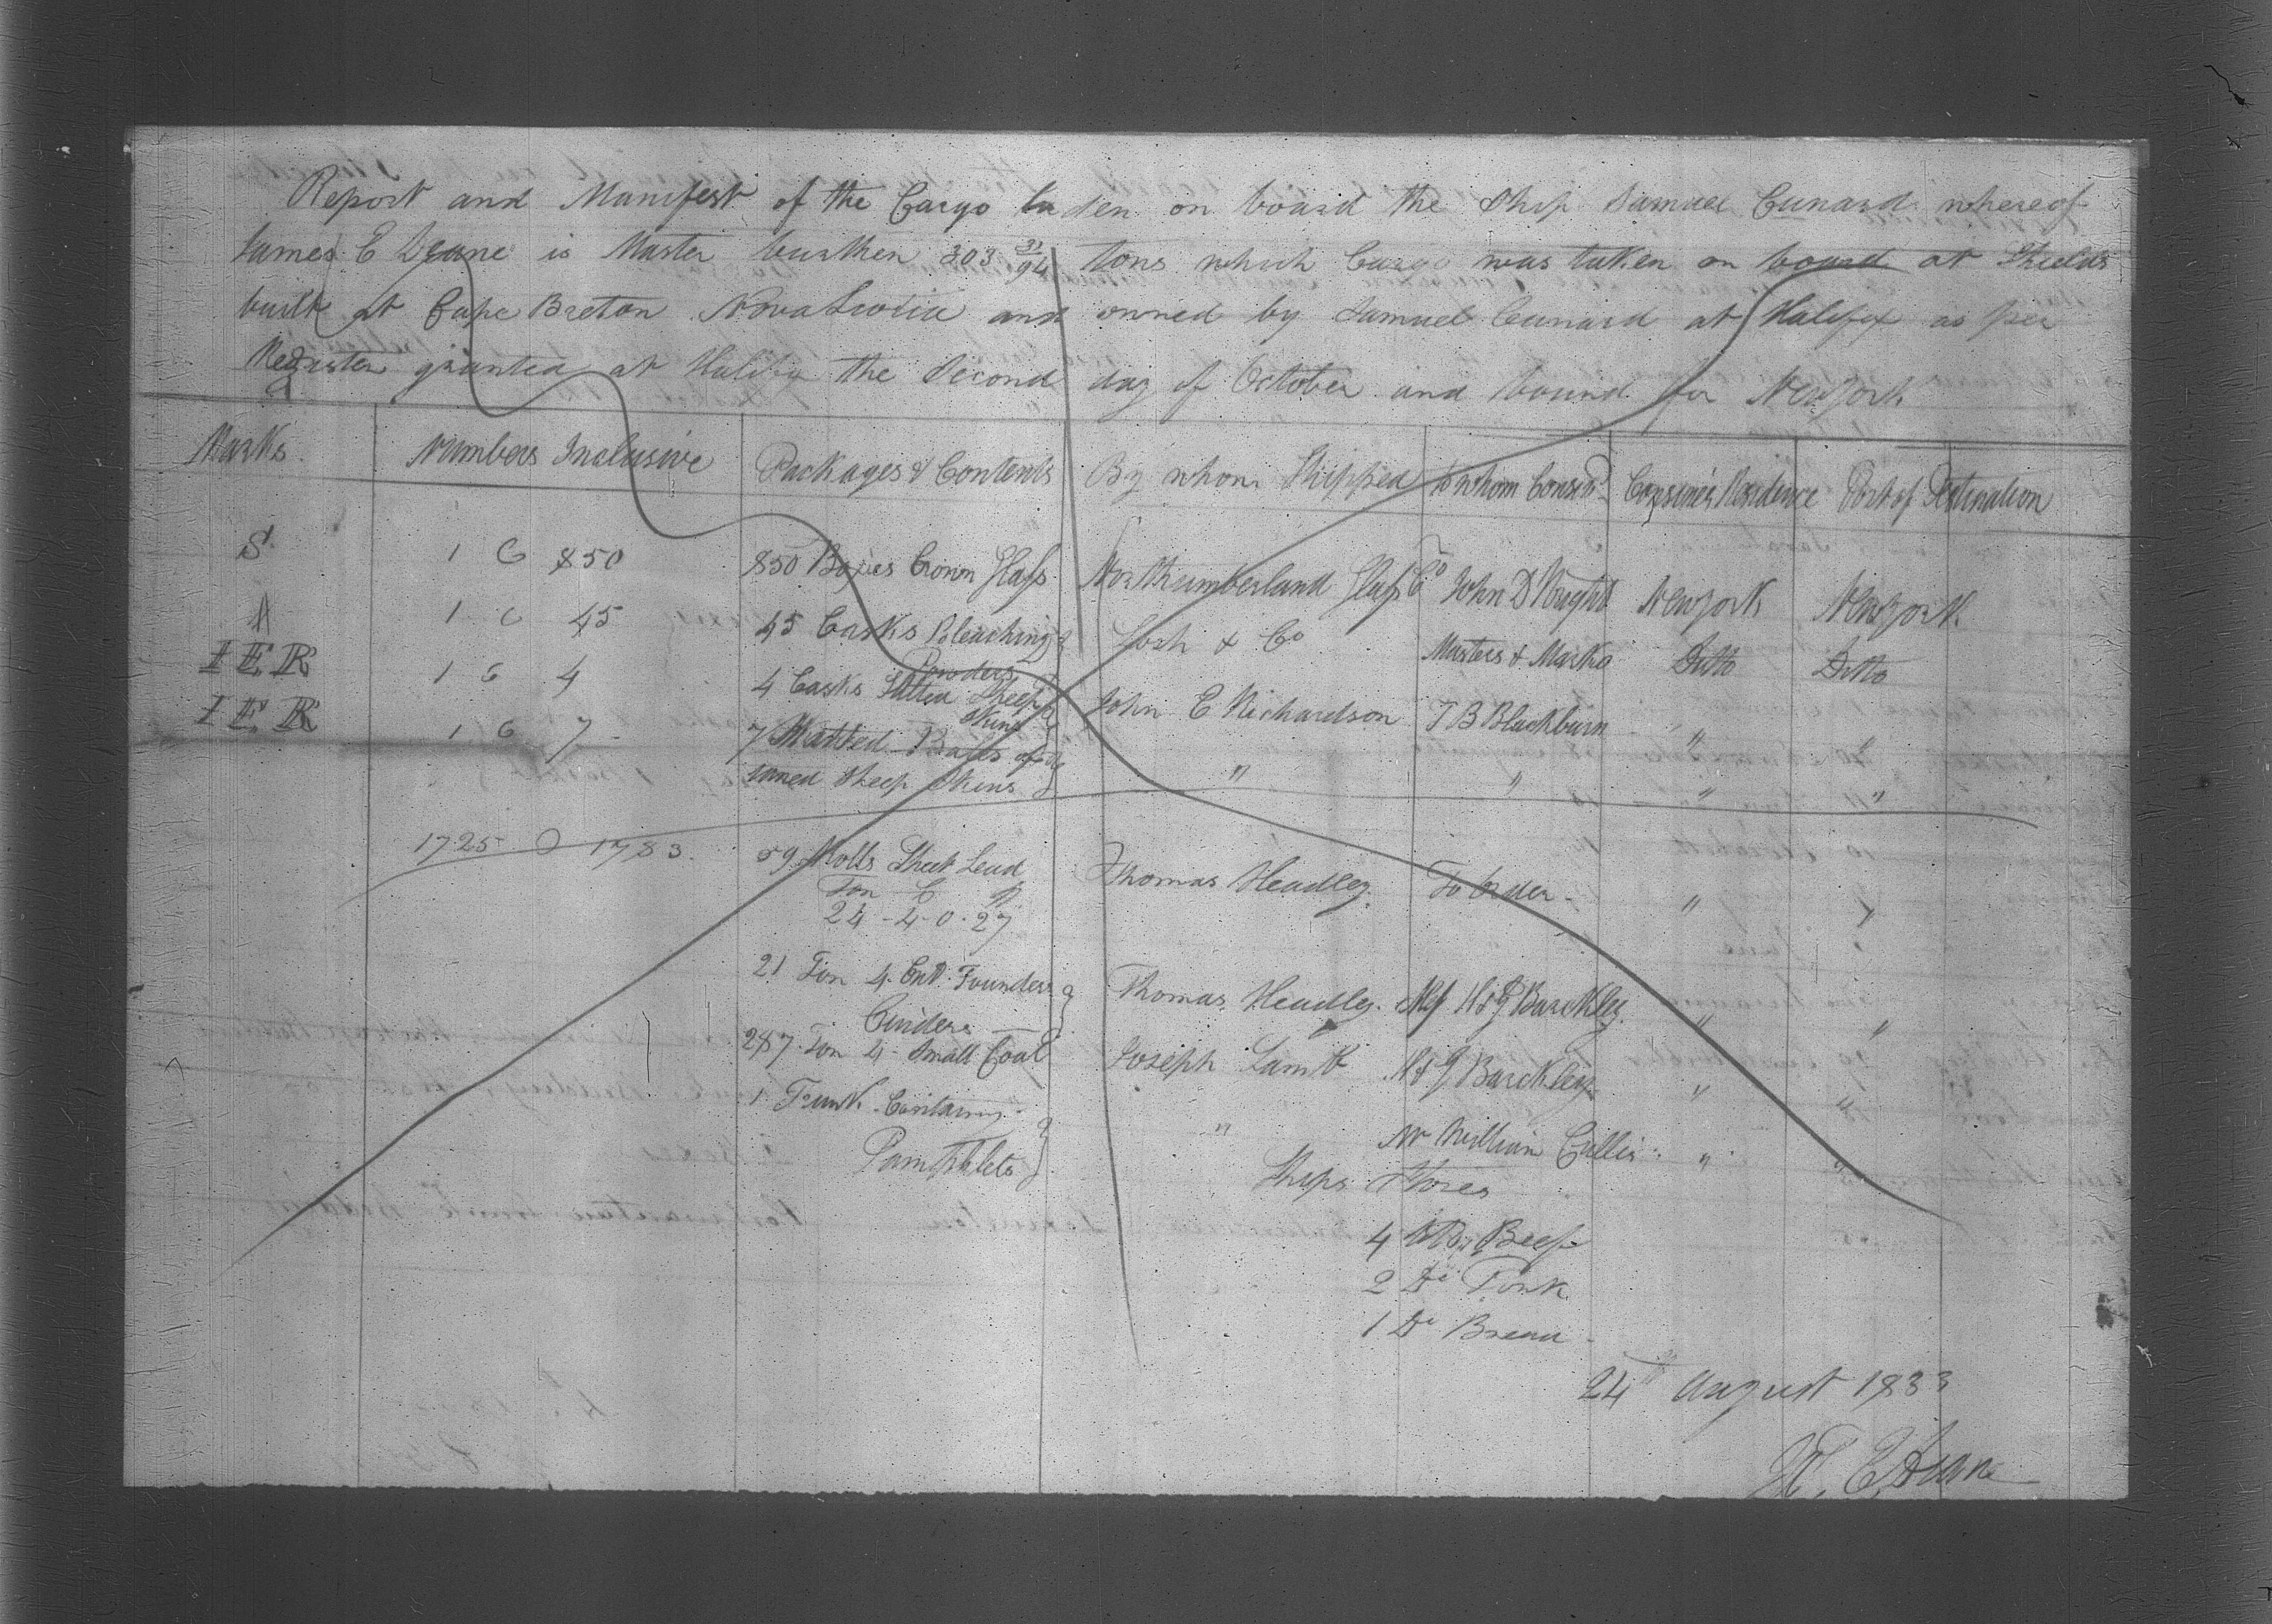 Report and Manifest of the Cargo laden on board the Ship Samuel Cunard whereof
James E Deane is Master burthen 303 31/94 tons which Cargo was taken on board at Shields
built at Cape Breton Nova Scotia and owned by Samuel Cunard at Halifax as per
Register granted at Halifax the Second day of October and bound for New York
Marks Numbers Inclusive Packages & Contents By whom Shipped to whom Consigd Consine's Residence Port of Destination
S 1 @ 850 850 Boxes Crown Glass Northumberland Glass Co John D Wright New York New York
A 1 @ 45 45 Casks Bleaching Powder Losh & Co Masters & Marko Ditto Ditto
I E R 1 @ 4 4 Casks Sheep Skins John E Richardson T B Blackburn " "
I E R 1 @ 7 7 Matted Bales of
Sheep Skins " " " "
1725 @ 1783 59 Rolls Sheet Lead Thomas Headley To Order " "
Ton C
24 - 4 - 0 - 27
21 Ton 4 Cwt Founders Thomas Headley H & G Barckley " "
Cinders
287 Ton 4 Small Coal Joseph Lamb H & G Barckley " "
1 Trunk Containing
Pamphlets " Mr William Cullis " "
Ships Stores
4 Beef
2 Do Pork
1 Do Bread
24th August 1833
J. E. Deane